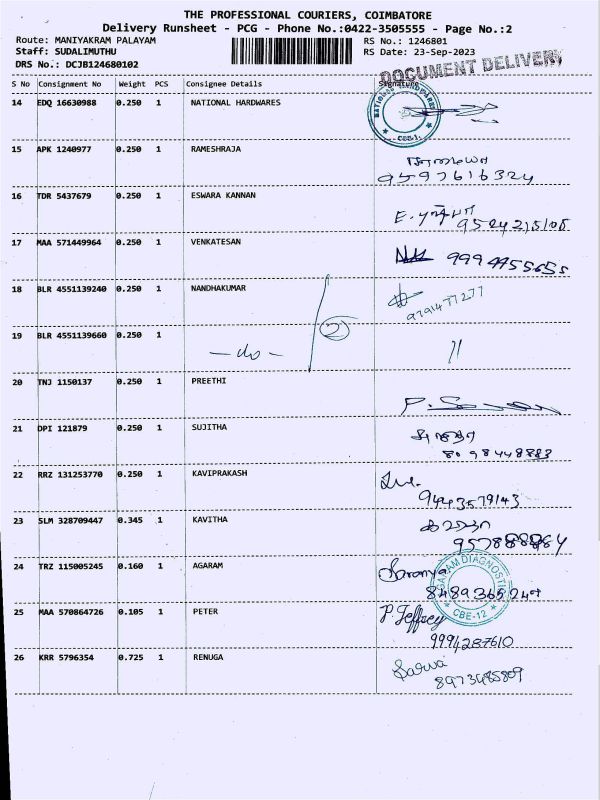 THE PROFESSIONAL COURIERS, COIMBATORE
Delivery Runsheet - PCG - Phone No.:0422-3505555 - Page No.:2
Route: MANIYAKRAM PALAYAM RS No.: 1246801
Staff: SUDALIMUTHU RS Date: 23-Sep-2023
DRS No.: DCJB124680102
DOCUMENT DELIVERY
S No Consignment No Weight PCS Consignee Details Signature
14 EDQ 16630988 0.250 1 NATIONAL HARDWARES
NATIONAL HARDWARES
CBE-1.
15 APK 1240977 0.250 1 RAMESHRAJA
9597616324
16 TDR 5437679 0.250 1 ESWARA KANNAN
17 MAA 571449964 0.250 1 VENKATESAN
9994955655
18 BLR 4551139240 0.250 1 NANDHAKUMAR
9791477277
19 BLR 4551139660 0.250 1
- do - 2 11
20 TNJ 1150137 0.250 1 PREETHI
21 DPI 121879 0.250 1 SUJITHA
சுஜிதா
8098448883
22 RRZ 131253770 0.250 1 KAVIPRAKASH
9443579143
23 SLM 328709447 0.345 1 KAVITHA
கவிதா
24 TRZ 115005245 0.160 1 AGARAM
AGARAM DIAGNOSTIC
CBE-12
Saranya
25 MAA 570864726 0.105 1 PETER
P. Jeffrey
9994287610
26 KRR 5796354 0.725 1 RENUGA
Sarva
8973485809